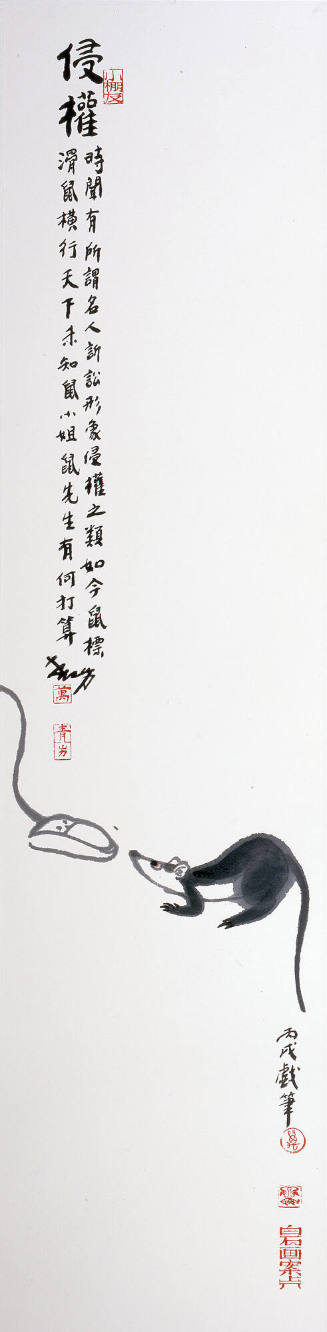 侵權
時聞有所謂名人訴訟形象侵權之類如今鼠標
滑鼠橫行天下未知鼠小姐鼠先生有何打算
萬
青力
丙戌戲筆